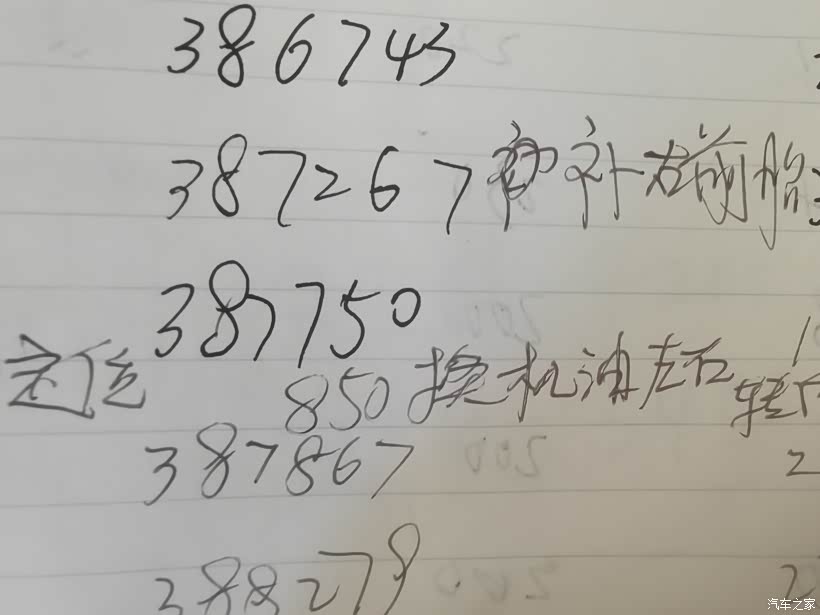 386743
387267 补左前胎
387750
定位 850 换机油左右转
387867 2
388278 2
汽车之家